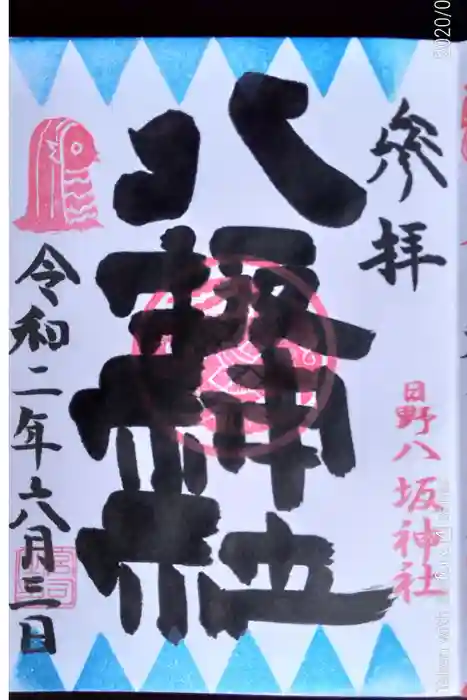 参拝
日野八坂神社
八坂神社
令和二年六月三日